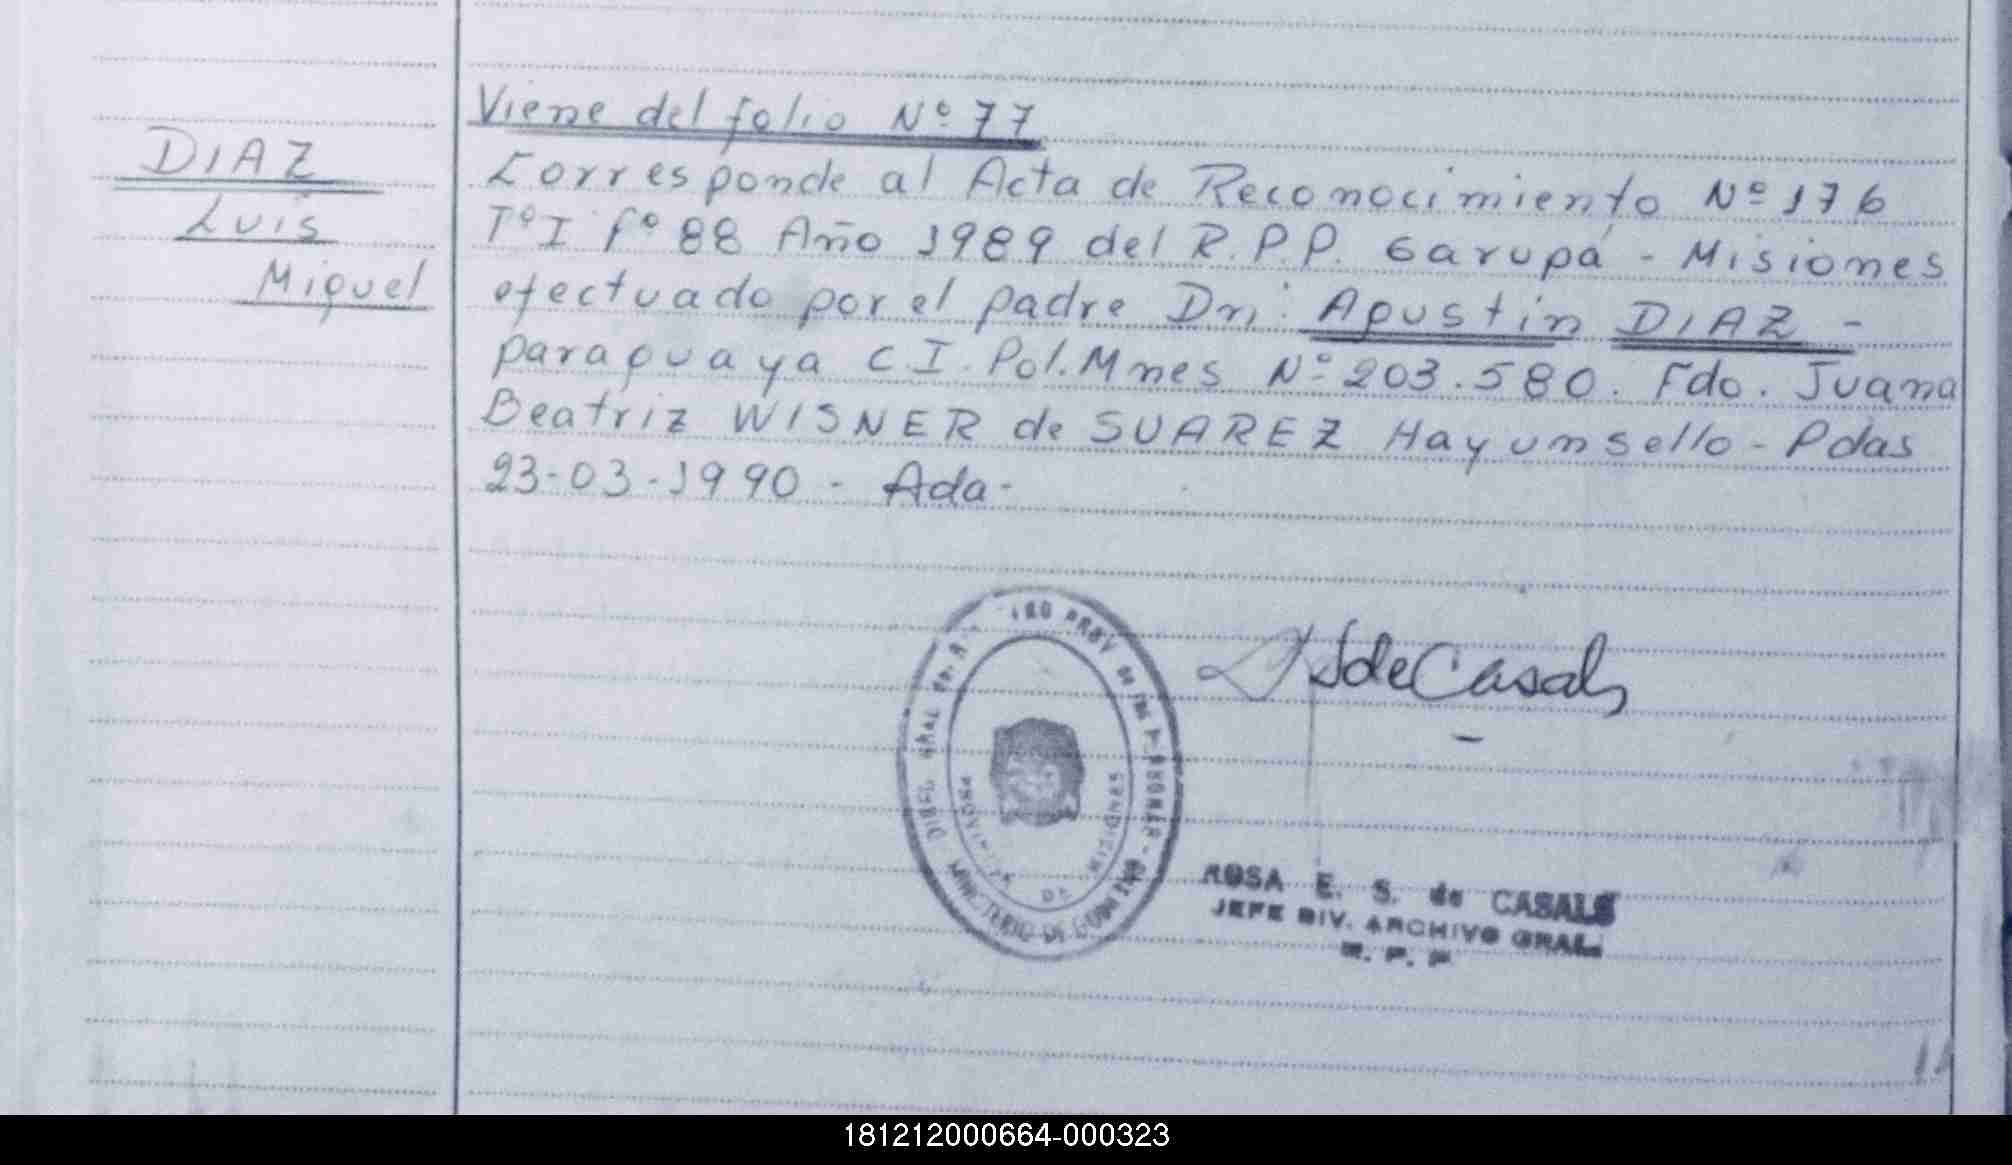 DIAZ
Luis
Miguel
Viene del folio Nº 77
Corresponde al Acta de Reconocimiento Nº 176
Tº I Fº 88 Año 1989 del R.P.P. Garupá - Misiones
efectuado por el padre Dn: Agustin DIAZ -
paraguaya C.I. Pol. Mnes Nº 203.580. Fdo. Juana
Beatriz WISNER de SUAREZ Hay un sello - Pdas
23-03-1990 - Ada-
de Casals
PROVINCIA DE MISIONES
MINISTERIO DE GOBIERNO
ROSA E. S. de CASALS
JEFE DIV. ARCHIVO GRAL.
R. P. P
181212000664-000323